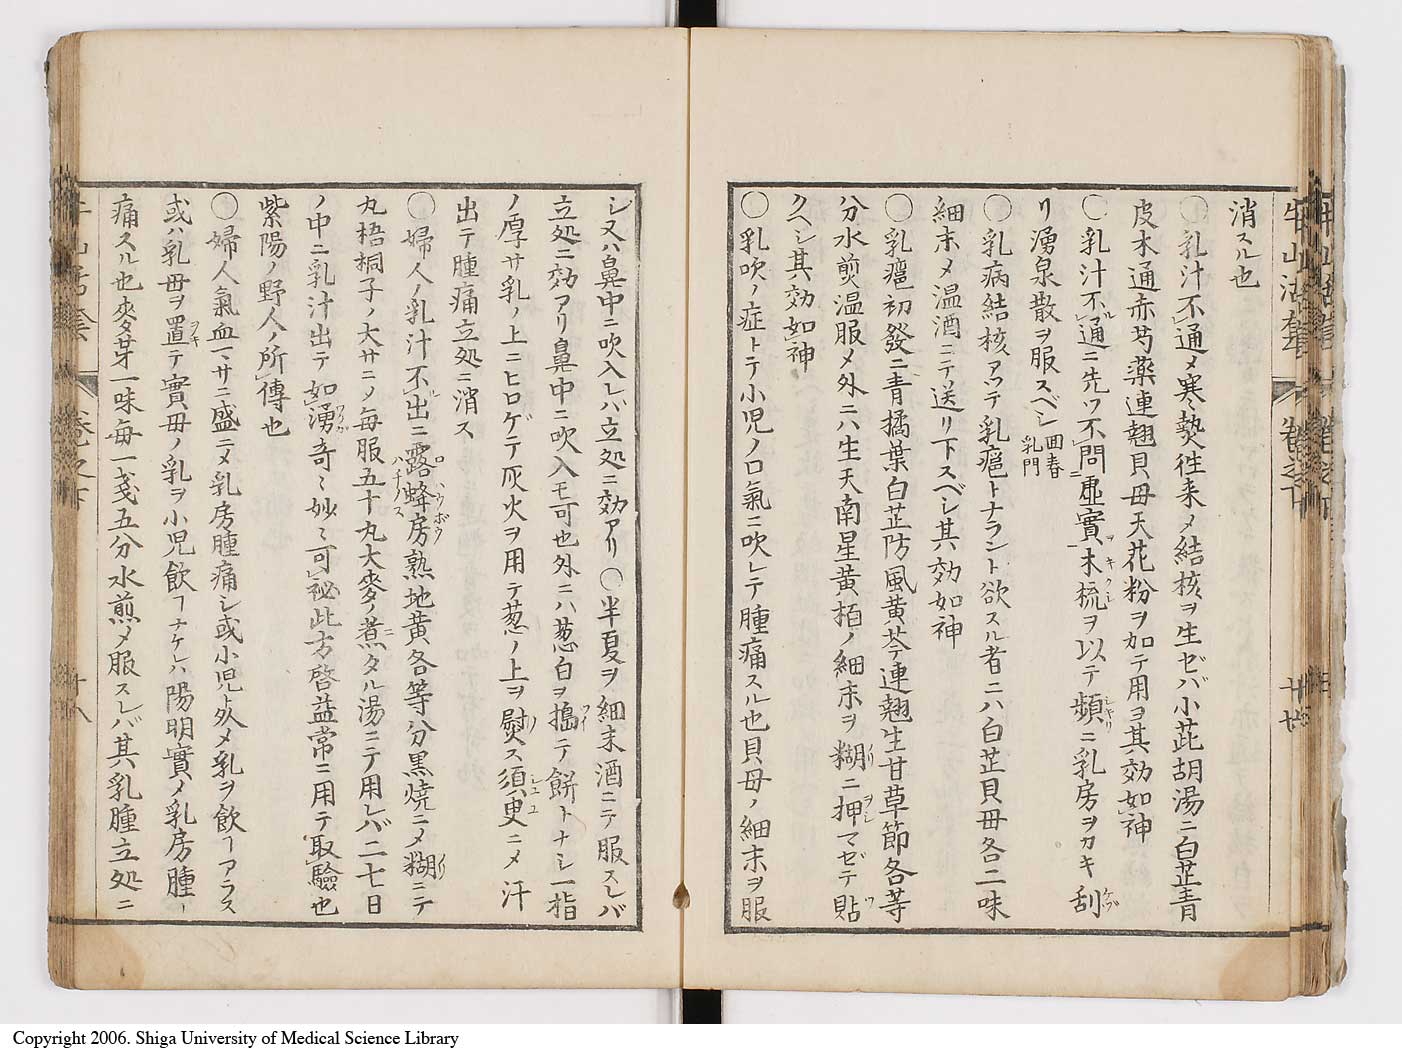 消スル也
〇乳汁不通メ寒熱徃来メ結核ヲ生ゼバ小茈胡湯ニ白芷青
皮木通赤芍薬連翹貝母天花粉ヲ加テ用ヨ其効如神
〇乳汁不通ニ先ツ不問虚實木梳ヲ以テ頻ニ乳房ヲカキ刮
リ湧泉散ヲ服スベシ 回春乳門
〇乳病結核アツテ乳癰トナラント欲スル者ニハ白芷貝母各二味
細末メ温酒ニテ送リ下スベシ其効如神
〇乳癰初發ニ青橘葉白芷防風黄芩連翹生甘草節各等
分水煎温服メ外ニハ生天南星黄栢ノ細末ヲ糊ニ押マゼテ貼
クベシ其効如神
〇乳吹ノ症トテ小児ノ口氣ニ吹レテ腫痛スル也貝母ノ細末ヲ服
シ又ハ鼻中ニ吹入レバ立処ニ効アリ〇半夏ヲ細末酒ニテ服スレバ
立処ニ効アリ鼻中ニ吹入モ可也外ニハ葱白ヲ搗テ餅トナシ一指
ノ厚サ乳ノ上ニヒロゲテ灰火ヲ用テ葱ノ上ヲ熨ス須臾ニメ汗
出テ腫痛立処ニ消ス
〇婦人ノ乳汁不出ニ露蜂房熟地黄各等分黒燒ニメ糊ニテ
丸梧桐子ノ大サニメ毎服五十丸大麥ノ煮タル湯ニテ用レバ二七日
ノ中ニ乳汁出テ如湧奇〻妙〻可秘此方啓益常ニ用テ取驗也
紫陽ノ野人ノ所傳也
〇婦人氣血一マサニ盛ニメ乳房腫痛シ或小児ト欠メ乳ヲ飲ヿアラス
或ハ乳母ヲ置テ實母ノ乳ヲ小児飲ヿナケレハ陽明實メ乳房腫
痛スル也麥芽一味毎一戔五分水煎メ服スレバ其乳腫立処ニ
牛山活套
卷之下
廿七
卷之下
廿八
Copyright 2006. Shiga University of Medical Science Library